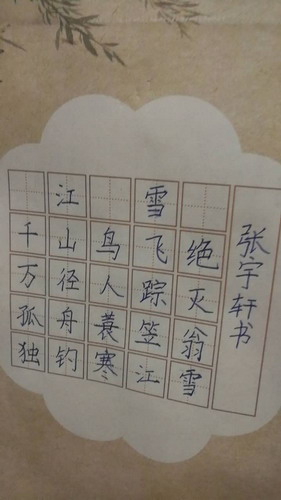 江雪
千山鸟飞绝
万径人踪灭
孤舟蓑笠翁
独钓寒江雪
张宇轩书